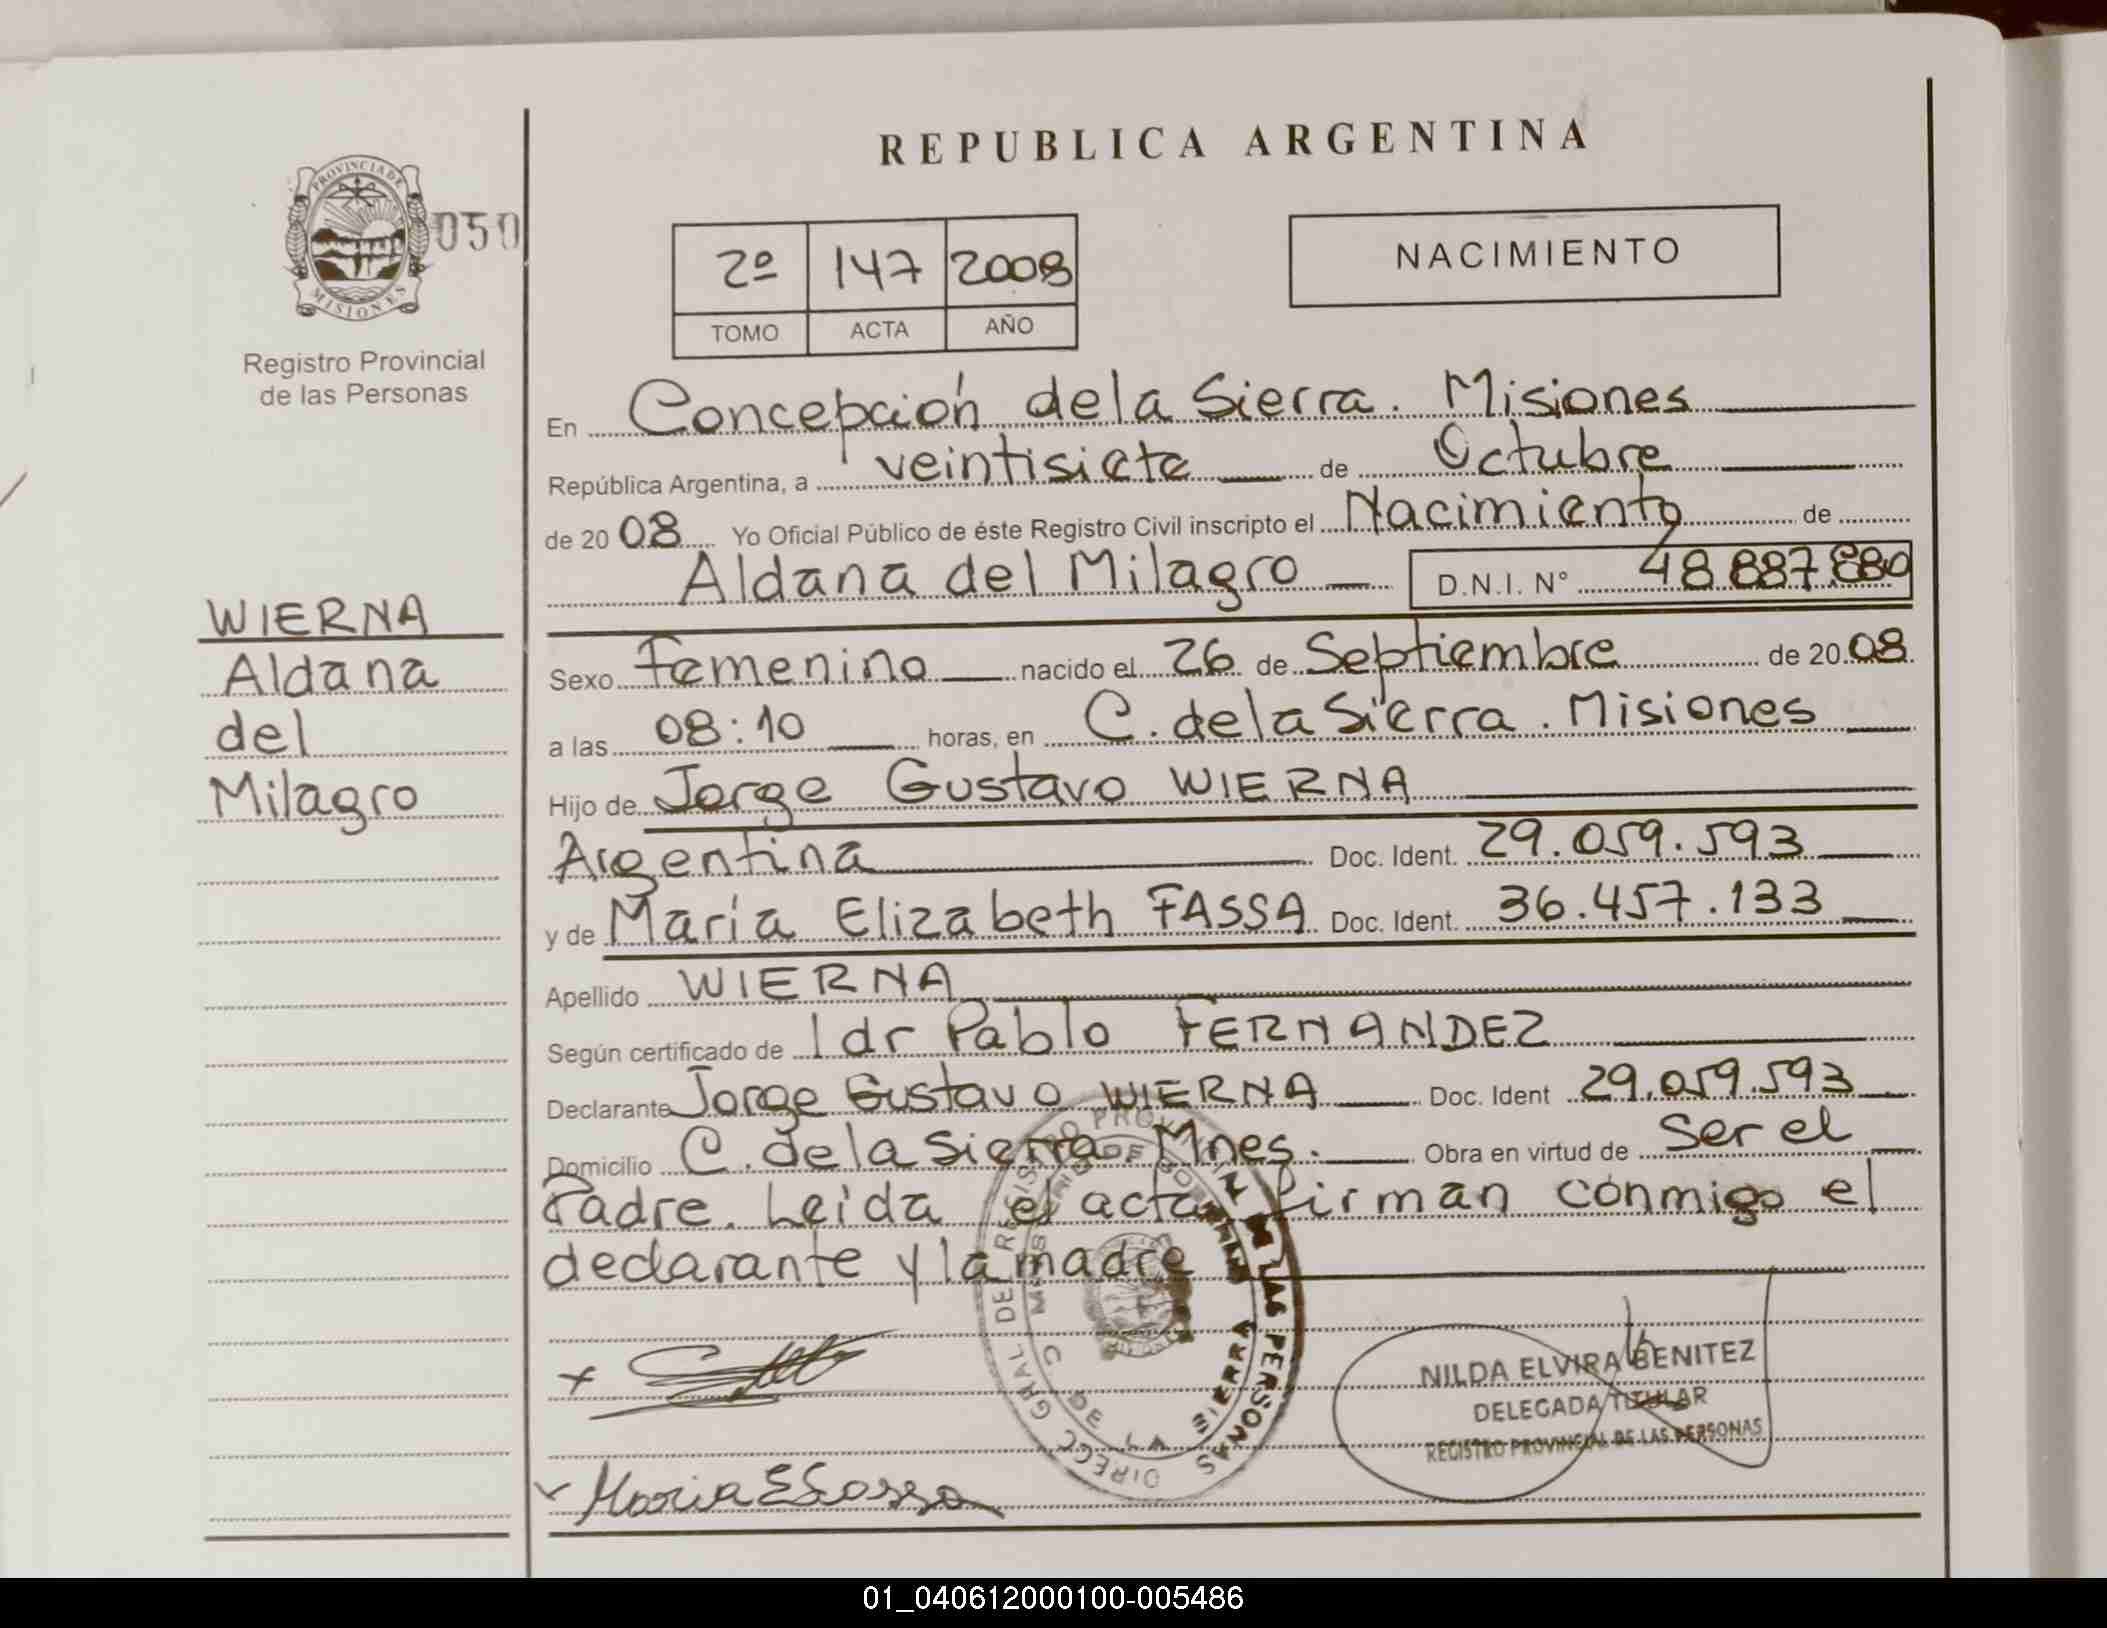 REPUBLICA ARGENTINA
PROVINCIA DE MISIONES
050
Registro Provincial
de las Personas
2º 147 2008
TOMO ACTA AÑO
NACIMIENTO
En Concepción de la Sierra. Misiones
República Argentina, a veintisiete de Octubre
de 2008 Yo Oficial Público de éste Registro Civil inscripto el Nacimiento de
Aldana del Milagro D.N.I. Nº 48.887.880
WIERNA
Aldana
del
Milagro
Sexo Femenino nacido el 26 de Septiembre de 2008
a las 08:10 horas, en C. de la Sierra. Misiones
Hijo de Jorge Gustavo WIERNA
Argentina Doc. Ident. 29.059.593
y de María Elizabeth FASSA Doc. Ident. 36.457.133
Apellido WIERNA
Según certificado de l dr Pablo FERNANDEZ
Declarante Jorge Gustavo WIERNA Doc. Ident 29.059.593
Domicilio C. de la Sierra. Mnes. Obra en virtud de Ser el
Padre. Leida el acta firman conmigo el
declarante y la madre
DIRECC GRAL DE REGISTRO PROV DE LAS PERSONAS
C DE LA SIERRA
NILDA ELVIRA BENITEZ
DELEGADA TITULAR
REGISTRO PROVINCIAL DE LAS PERSONAS
01_040612000100-005486